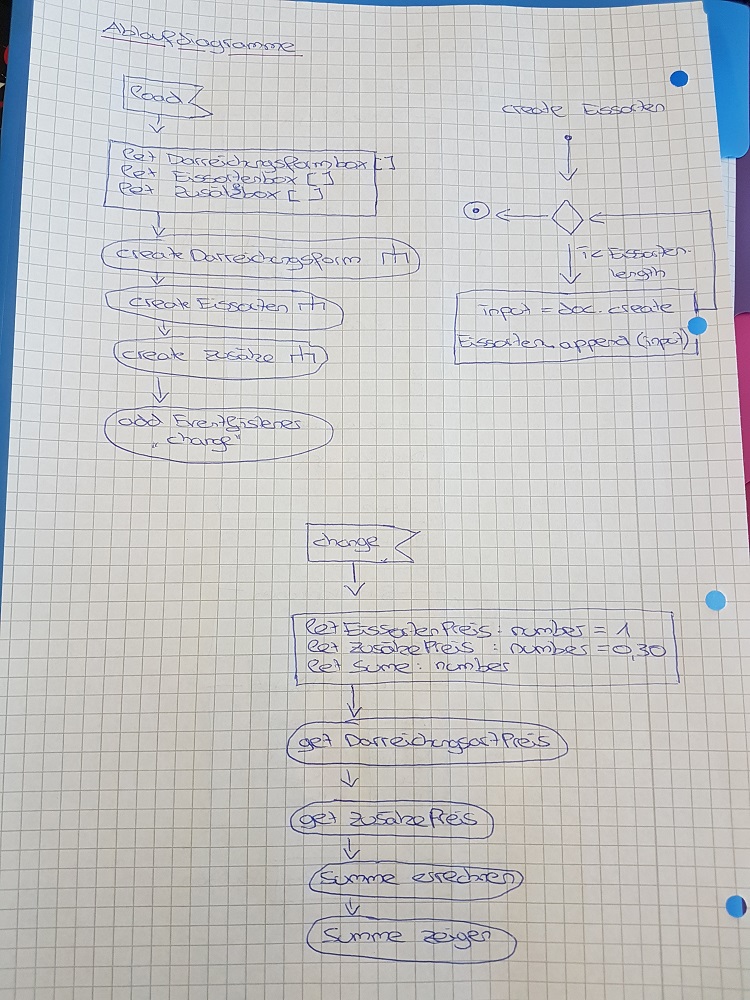 Ablaufdiagramme
load
let Darreichungsformbox []
let Eissortenbox []
let Zusätzbox []
create Darreichungsform
create Eissorten
create Zusäze
add Eventlistener
„change"
create Eissorten
i< Eissorten.
length
input = doc.create
Eissorten.append (input)
change
let EissortenPreis : number = 1
let ZusäzePreis : number = 0,30
let Sume : number
get DarreichungsartPreis
get ZusäzePreis
Summe errechnen
Summe zeigen